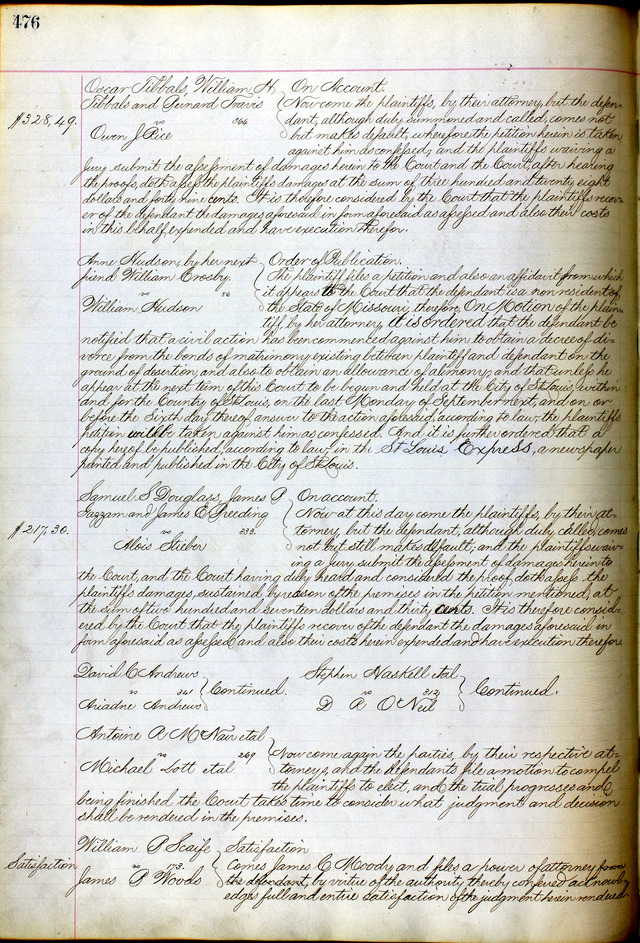 476
Oscar Tibbals, William H
Tibbals and Gernard Travis
vs 364
Owen J Rice
$328,49.
On Account.
Now come the plaintiffs, by their attorney, but the defen-
dant, although duly summoned and called, comes not
but makes default, wherefore the petition herein is taken
against him as confessed; and the plaintiffs waiving a
jury submit the assessment of damages herein to the Court and the Court, after hearing
the proofs, doth assess the plaintiffs damages at the sum of three hundred and twenty eight
dollars and forty nine cents. It is therefore considered by the Court that the plaintiffs recov-
er of the defendant the damages aforesaid in form aforesaid as assessed and also their costs
in this behalf expended and have execution therefor.
Anne Hudson, by her next
friend William Crosby.
vs 86
William Hudson
Order of Publication.
The plaintiff files a petition and also an affidavit from which
it appears to the Court that the defendant is a non resident of
the State of Missouri, therefore, On Motion of the plain-
tiff, by her attorney, it is ordered that the defendant be
notified that a civil action has been commenced against him to obtain a decree of di-
vorce from the bonds of matrimony existing between plaintiff and defendant on the
ground of desertion, and also to obtain an allowance of alimony, and that unless he
appear at the next term of this Court to be begun and held at the City of St Louis, within
and for the County of St Louis, on the last Monday of September next, and on or
before the Sixth day thereof answer to the action aforesaid, according to law, the plaintiffs
petition will be taken against him as confessed. And it is further ordered that a
copy hereof be published, according to law in the St Louis Express, a newspaper
printed and published in the City of St Louis.
Samuel S Douglass, James P
Gazzam and James E Breeding
vs 333.
Alois Gieber
$217,30.
On account.
Now at this day come the plaintiffs, by their at-
torney, but the defendant, although duly called, comes
not but still makes default; and the plaintiffs waiv-
ing a jury submit the assessment of damages herein to
the Court, and the Court having duly heard and considered the proof, doth assess the
plaintiffs damages, sustained by reason of the premises in the petition mentioned, at
the sum of two hundred and seventeen dollars and thirty cents. It is therefore consid-
ered by the Court that the plaintiffs recover of the defendant the damages aforesaid in
form aforesaid as assessed and also their costs herein expended and have execution therefor.
David C Andrews
vs 341
Ariadne Andrews
Continued.
Stephen Haskell etal
vs 312
D A O'Neil
Continued.
Antoine A McNair etal
vs 269
Michael Lott etal
Now come again the parties, by their respective at-
torneys, and the defendants file a motion to compel
the plaintiffs to elect, and the trial progresses and
being finished the Court takes time to consider what judgment and decision
shall be rendered in the premises.
William P Scaife
vs 173.
James P Woods
Satisfaction
Satisfaction
Comes James C Moody and files a power of attorney from
the defendant, by virtue of the authority thereby conferred acknowl-
edges full and entire satisfaction of the judgment herein rendered